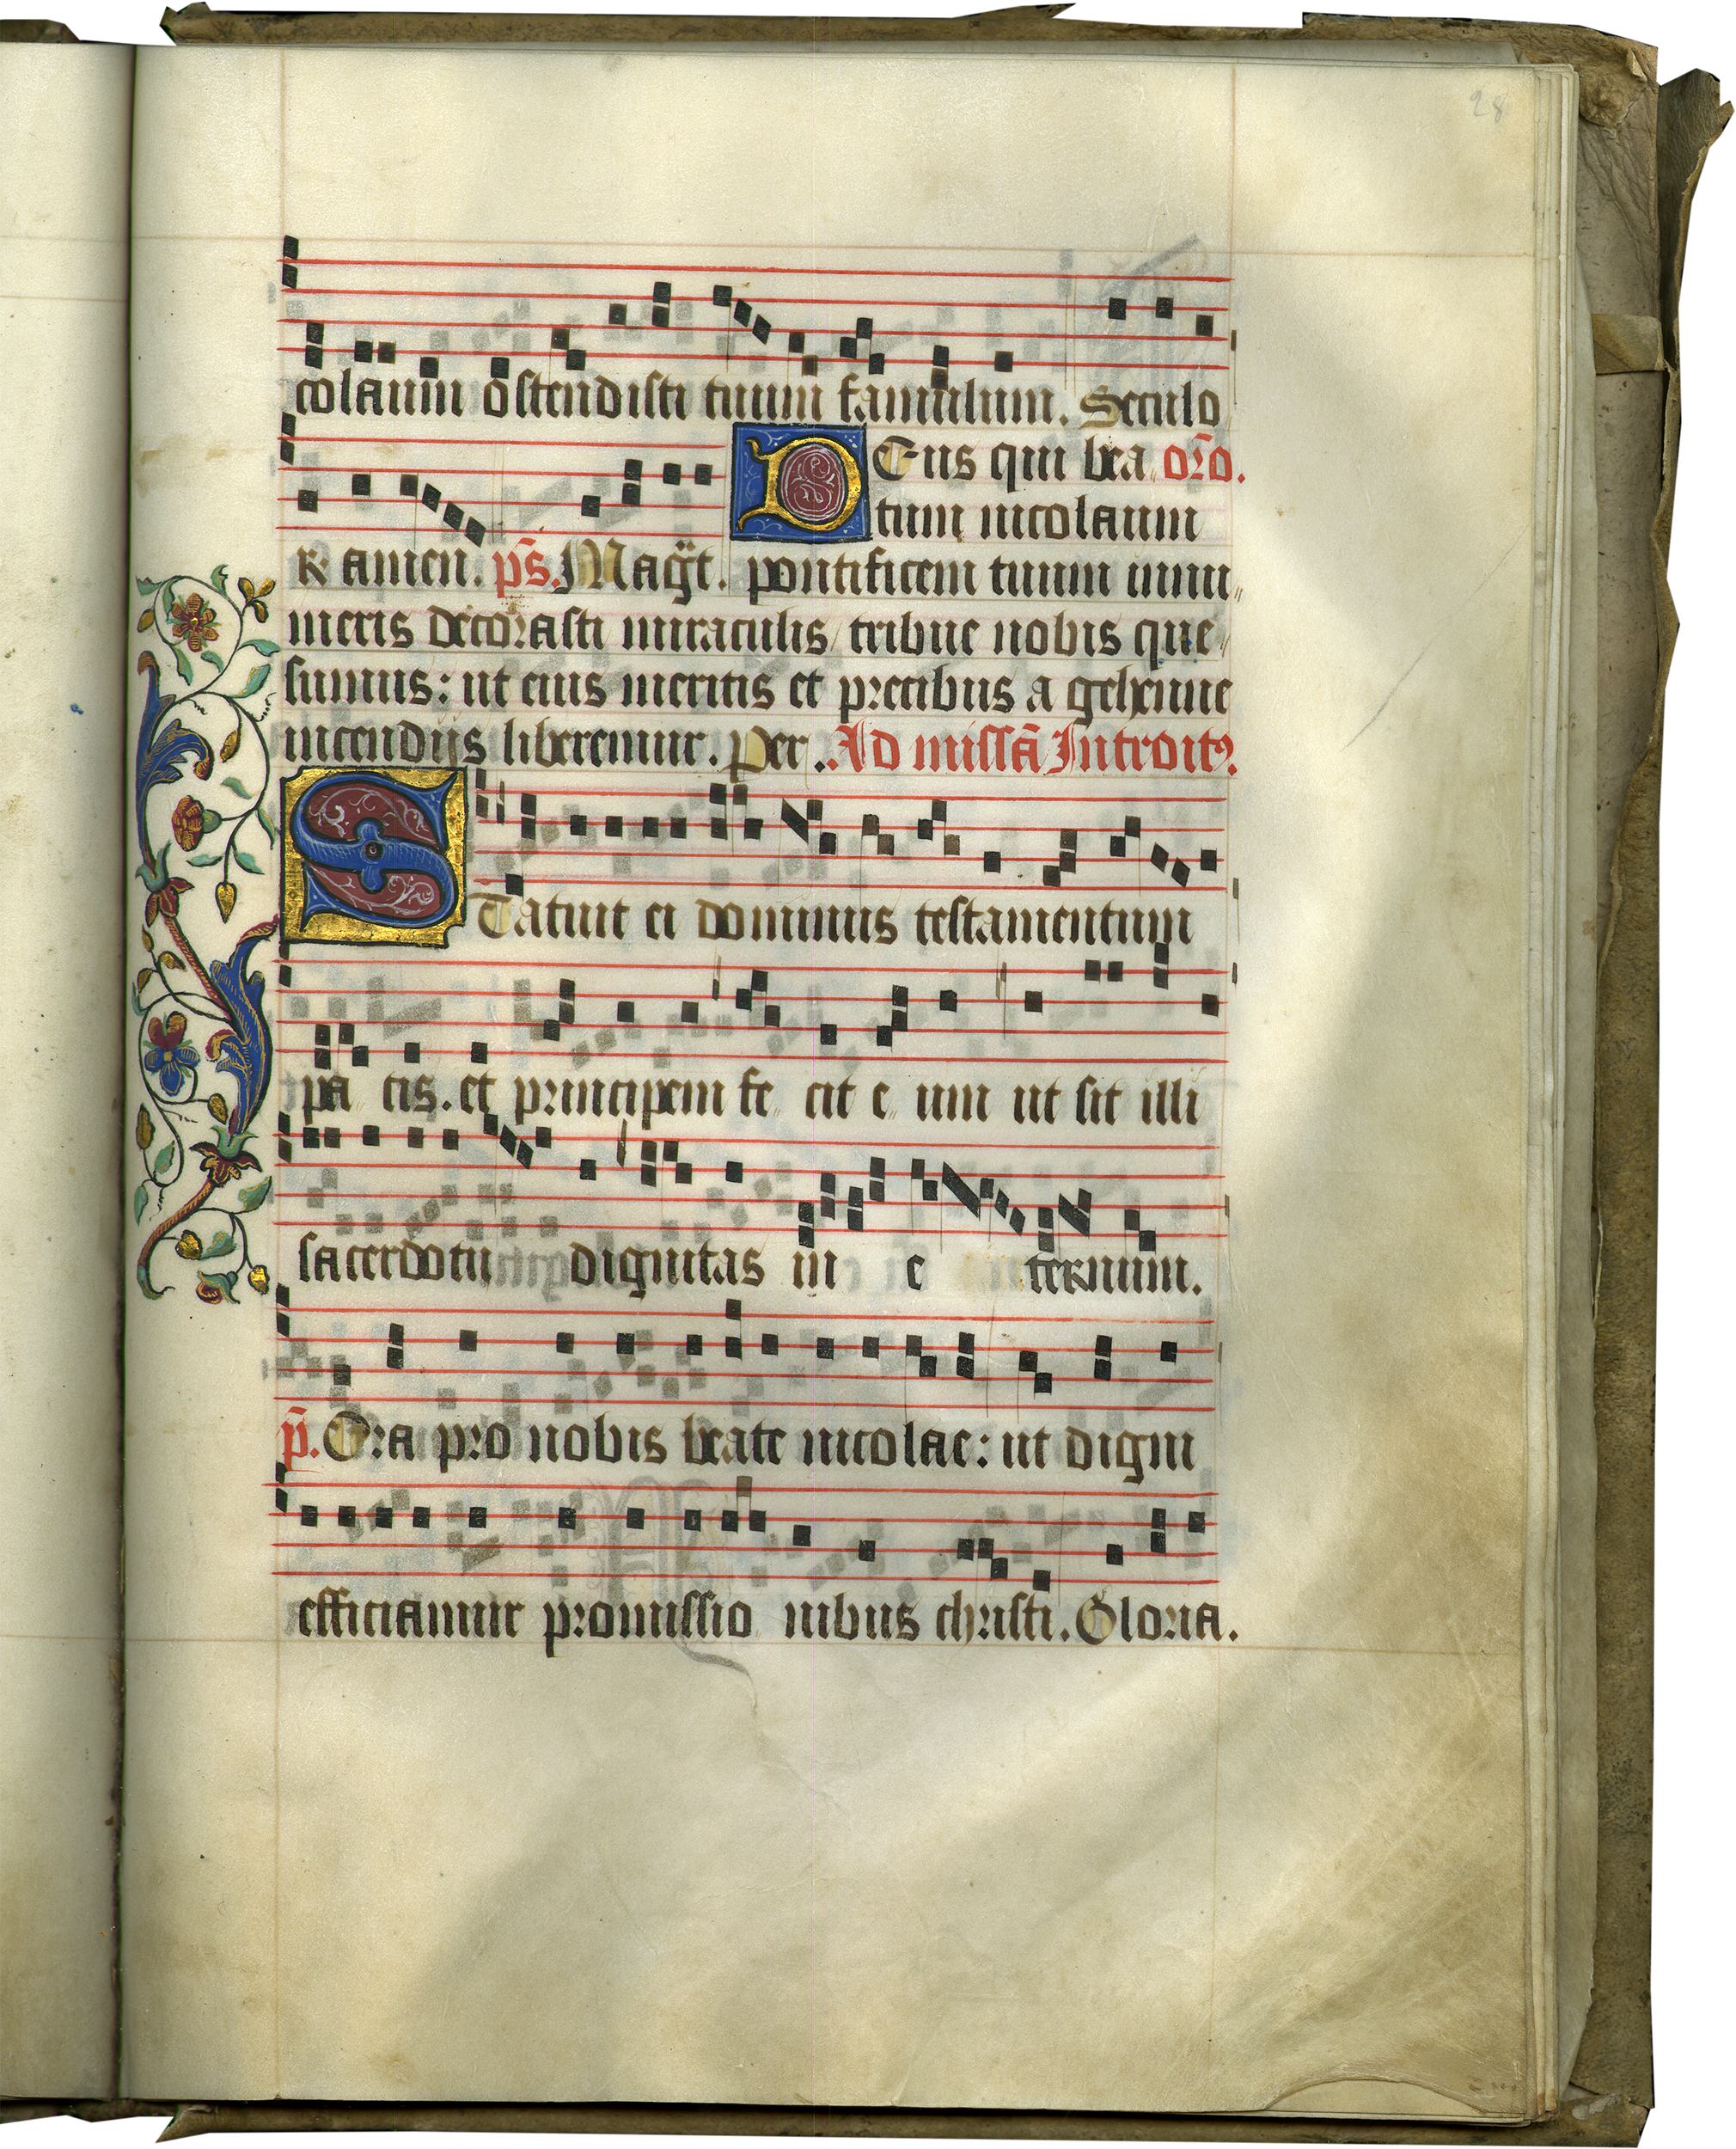 28
colaum ostendisti tuum famulum. Seculo
DEus qui bea oro.
tum nicolaum
R amen. ps. Magt. pontificem tuum innu„
meris decorasti miraculis tribue nobis que„
sumus: ut eius meritis et precibus a gehenne
incendijs liberemur. Per. Ad missã Introitꝰ.
STatuit ei dominus testamentum
pa cis. et principem fe cit e um ut sit illi
sacerdotii dignitas in e ternum.
p̃. Ora pro nobis beate nicolae: ut digni
efficiamur promissio nibus christi. Gloria.